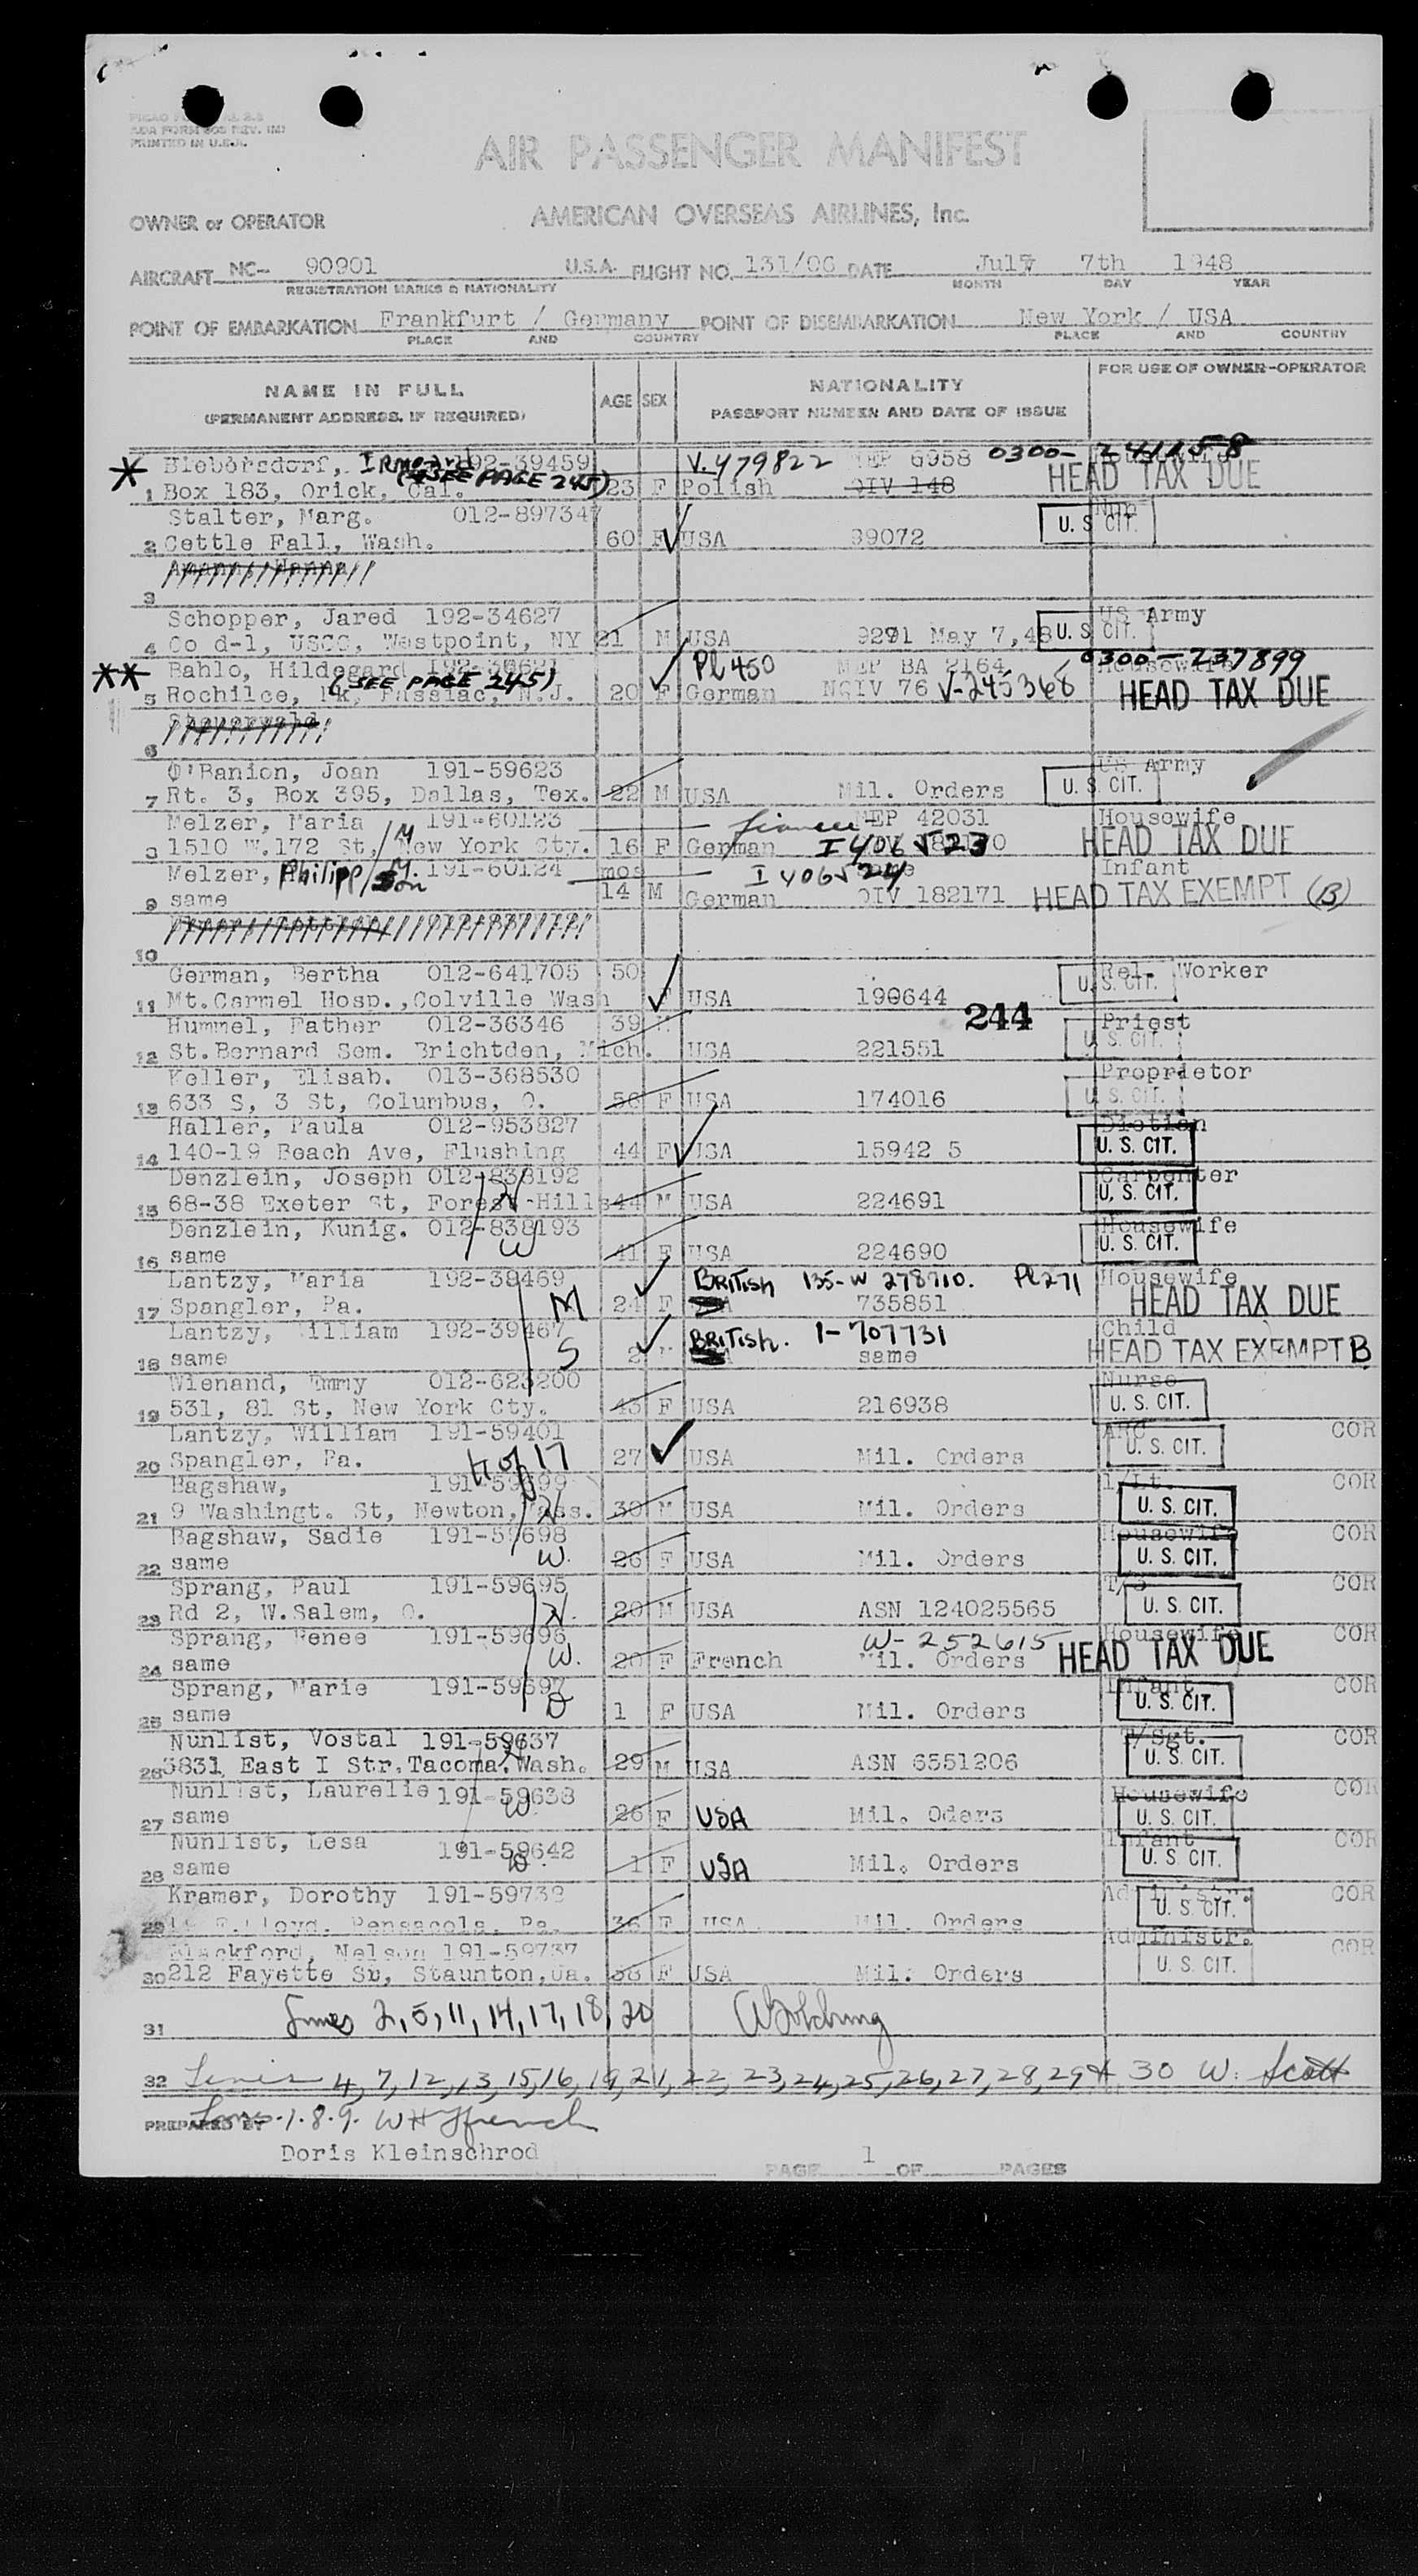 PRINTED IN U.S.A.
AIR PASSENGER MANIFEST
OWNER or OPERATOR AMERICAN OVERSEAS AIRLINES, Inc.
AIRCRAFT NC- 90901 U.S.A. FLIGHT NO. 131/06 DATE July 7th 1948
REGISTRATION MARKS & NATIONALITY MONTH DAY YEAR
POINT OF EMBARKATION Frankfurt / Germany POINT OF DISEMBARKATION New York / USA
PLACE AND COUNTRY PLACE AND COUNTRY
NAME IN FULL AGE SEX NATIONALITY FOR USE OF OWNER-OPERATOR
(PERMANENT ADDRESS, IF REQUIRED) PASSPORT NUMBER AND DATE OF ISSUE
* Biebersdorf, 192-39459 V. 479822 MEP 6958 0300- 241158
(*SEE PAGE 245) HEAD TAX DUE
1 Box 183, Orick, Cal. 23 F Polish QIV 148
Stalter, Marg. 012-897347 Nun
2 Cettle Fall, Wash. 60 F USA 39072 U.S. CIT.
3
Schopper, Jared 192-34627 US Army
4 Co d-1, USCC, Westpoint, NY 21 M USA 9291 May 7,48 U.S. CIT.
** Bahlo, Hildegard Pl 450 MEP BA 2164 0300-237899 Housewife
(SEE PAGE 245)
5 Rochilce, Pk, Passiac, N.J. 20 F German NQIV 76 V-245368 HEAD TAX DUE
6
O'Banion, Joan 191-59623 US Army
7 Rt. 3, Box 395, Dallas, Tex. 22 M USA Mil. Orders U.S. CIT.
Melzer, Maria 191-60123 MEP 42031 Housewife
8 1510 W.172 St, New York Cty. M 16 F German HEAD TAX DUE
Melzer, Philipp 191-60124 mos same Infant
9 same Son 14 M German QIV 182171 HEAD TAX EXEMPT (B)
10
German, Bertha 012-641705 50 Rel. Worker
11 Mt.Carmel Hosp.,Colville Wash F USA 190644 U.S. CIT.
244
Hummel, Father 012-36346 39 M Priest
12 St.Bernard Sem. Brichtden, Mich. USA 221551 U.S. CIT.
Keller, Elisab. 013-368530 Proprietor
13 633 S, 3 St, Columbus, O. 56 F USA 174016 U.S. CIT.
Haller, Paula 012-953827 Dietian
14 140-19 Beach Ave, Flushing 44 F USA 15942 5 U.S. CIT.
Denzlein, Joseph 012-838192 Carpenter
15 68-38 Exeter St, Forest-Hills 44 M USA 224691 U.S. CIT.
Denzlein, Kunig. 012-838193 Housewife
16 same W 41 F USA 224690 U.S. CIT.
Lantzy, Maria 192-38469 BRITISH 135-W 278710. Pl 271 Housewife
17 Spangler, Pa. M 24 F 735851 HEAD TAX DUE
Lantzy, William 192-39467 BRITISH. 1-707731 Child
18 same S 2 M same HEAD TAX EXEMPT B
Wienand, Emmy 012-623200 Nurse
19 531, 81 St, New York Cty. 43 F USA 216938 U.S. CIT.
Lantzy, William 191-59401 COR
20 Spangler, Pa. H of 17 27 USA Mil. Orders U.S. CIT.
Bagshaw, 191-59399 1/Lt. COR
21 9 Washingt. St, Newton, Mass. 30 M USA Mil. Orders U.S. CIT.
Bagshaw, Sadie 191-59698 Housewife COR
22 same W. 26 F USA Mil. Orders U.S. CIT.
Sprang, Paul 191-59695 COR
23 Rd 2, W.Salem, O. H. 20 M USA ASN 124025565 U.S. CIT.
Sprang, Renee 191-59696 W-252615 Housewife COR
24 same W. 20 F French Mil. Orders HEAD TAX DUE
Sprang, Marie 191-59697 Infant COR
25 same D 1 F USA Mil. Orders U.S. CIT.
Nunlist, Vostal 191-59637 T/Sgt. COR
26 3831 East I Str.Tacoma.Wash. 29 M USA ASN 6551206 U.S. CIT.
Nunlist, Laurelie 191-59638 Housewife COR
27 same W 26 F USA Mil. Oders U.S. CIT.
Nunlist, Lesa 191-59642 Infant COR
28 same D. 1 F USA Mil. Orders U.S. CIT.
Kramer, Dorothy 191-59739 Administr. COR
29 Pensacola, 36 F USA Mil. Orders U.S. CIT.
Blackford, Nelson 191-59737 Administr. COR
30 212 Fayette Sr, Staunton, 38 F USA Mil. Orders U.S. CIT.
31 Lines 2,5,11,14,17,18,20
32 Lines 4,7,12,13,15,16,19,21,22,23,24,25,26,27,28,29 & 30 W. Scott
PREPARED BY Lines 1.8.9.
Doris Kleinschrod
PAGE 1 OF PAGES